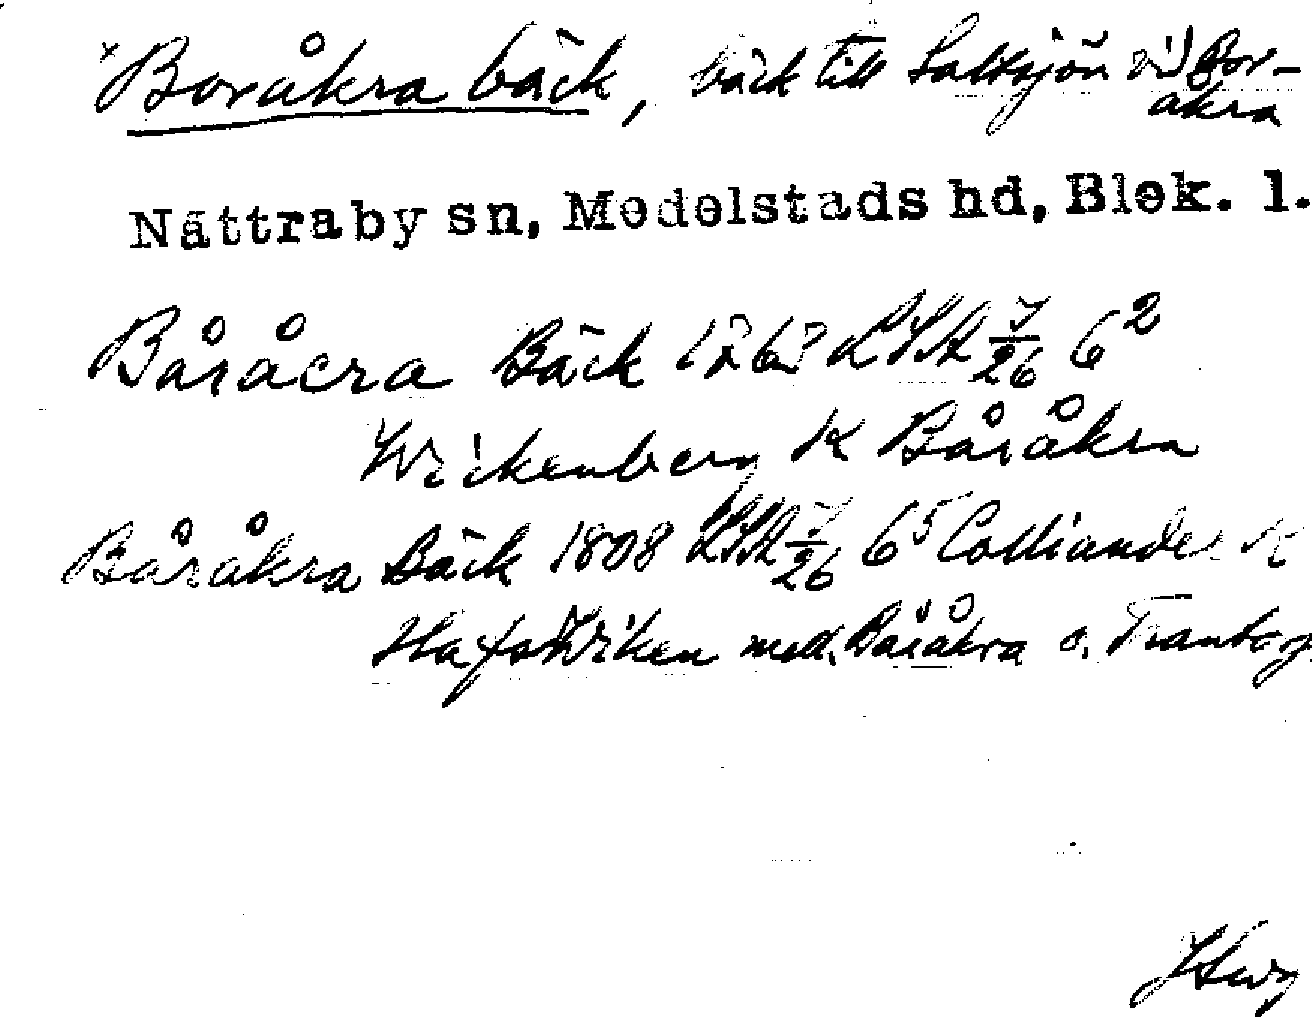 × Boråkra bäck, bäck till Saltsjön vid Bor-
åkra
Nättraby sn, Medelstads hd, Blek. l.
Båråcra Bäck 1763 LStA J/26 6²
Wickenberg K Båråkra
Båråkra Bäck 1808 LStA J/26 6⁵ Colliander K
Hafswiken mell. Båråkra o. Trantorp